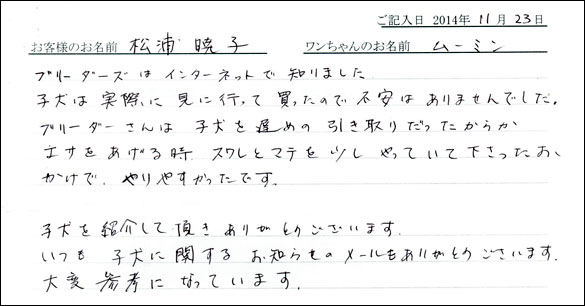 ご記入日 2014年 11月 23日
お客様のお名前 松浦 暁子 ワンちゃんのお名前 ムーミン
ブリーダーズはインターネットで知りました
子犬は実際に見に行って買ったので不安はありませんでした。
ブリーダーさんは子犬を遅めの引き取りだったからか
エサをあげる時、スワレとマテを少しやっていて下さったお、
かげで、やりやすかったです。
子犬を紹介して頂きありがとうございます。
いつも子犬に関するお知らせのメールもありがとうございます。
大変参考になっています。